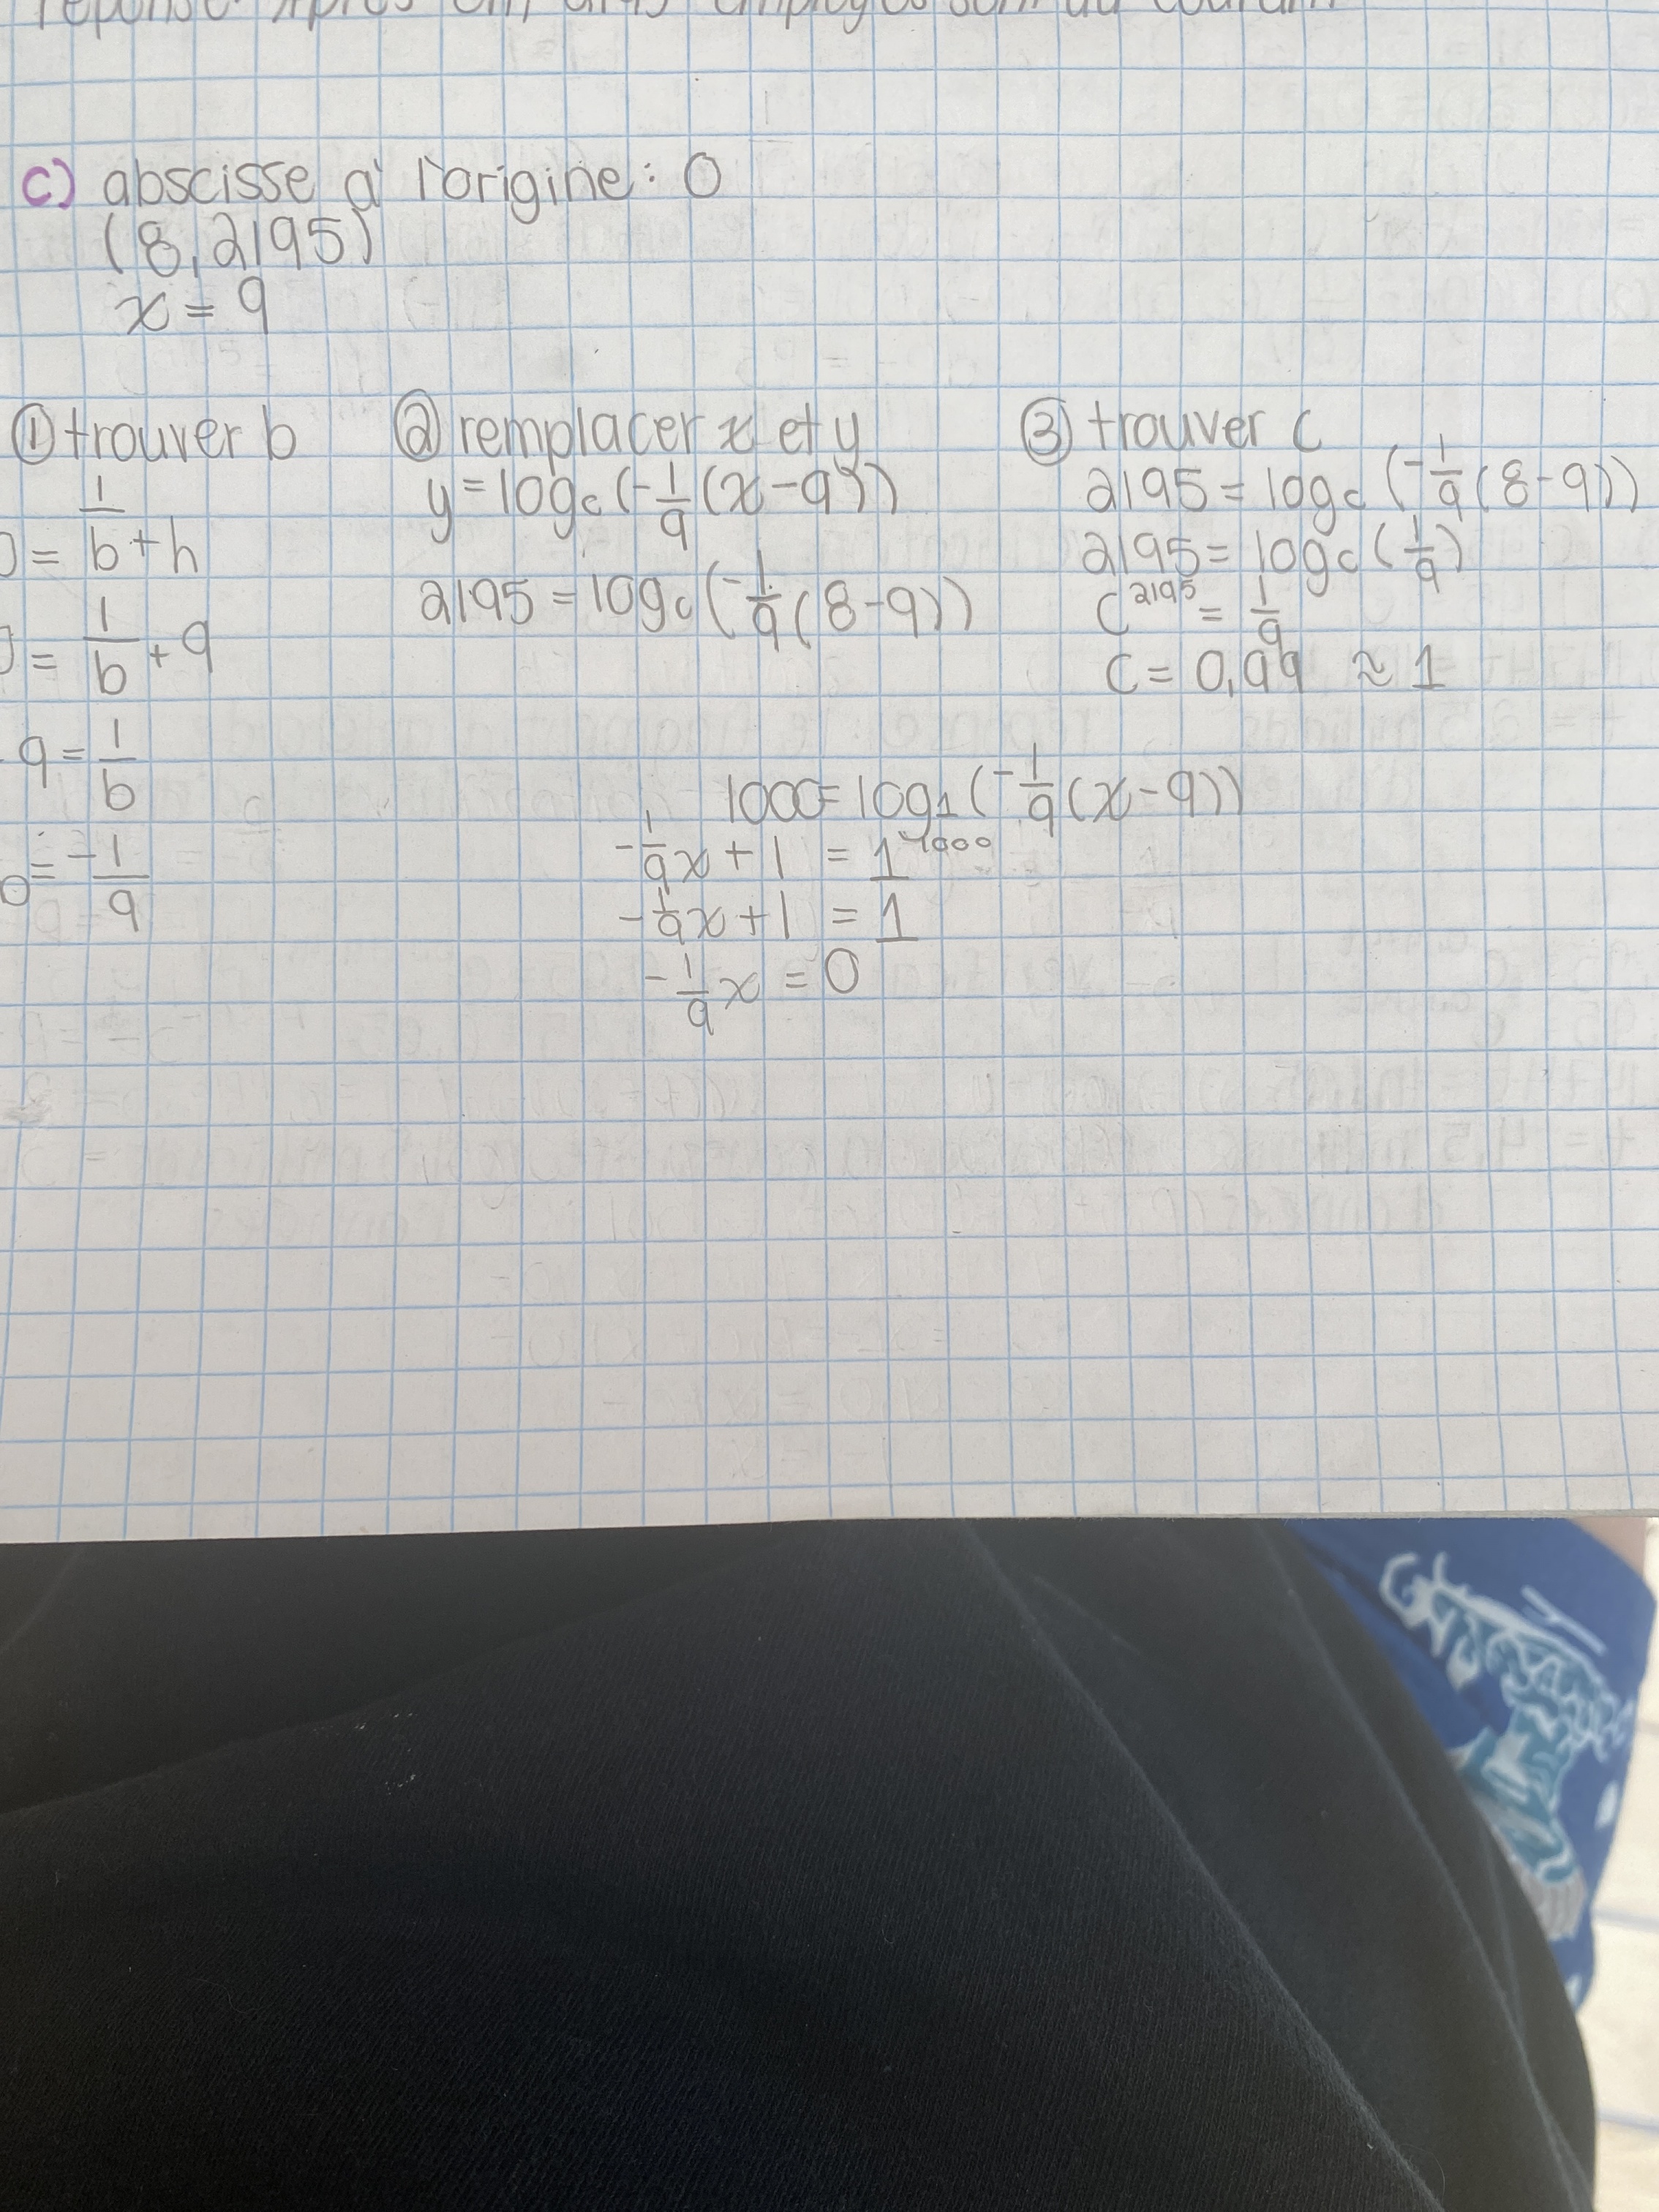 c) abscisse à l'origine : 0
(8, 2195)
x = 9
① trouver b
1
= b + h
= 1/b + 9
-9 = 1/b
= -1/9
② remplacer x et y
y = logc (-1/9 (x - 9))
2195 = logc (-1/9 (8 - 9))
③ trouver c
2195 = logc (-1/9 (8 - 9))
2195 = logc (1/9)
c^2195 = 1/9
c = 0,99 ≈ 1
1000 = log1 (-1/9 (x - 9))
-1/9 x + 1 = 1^1000
-1/9 x + 1 = 1
-1/9 x = 0